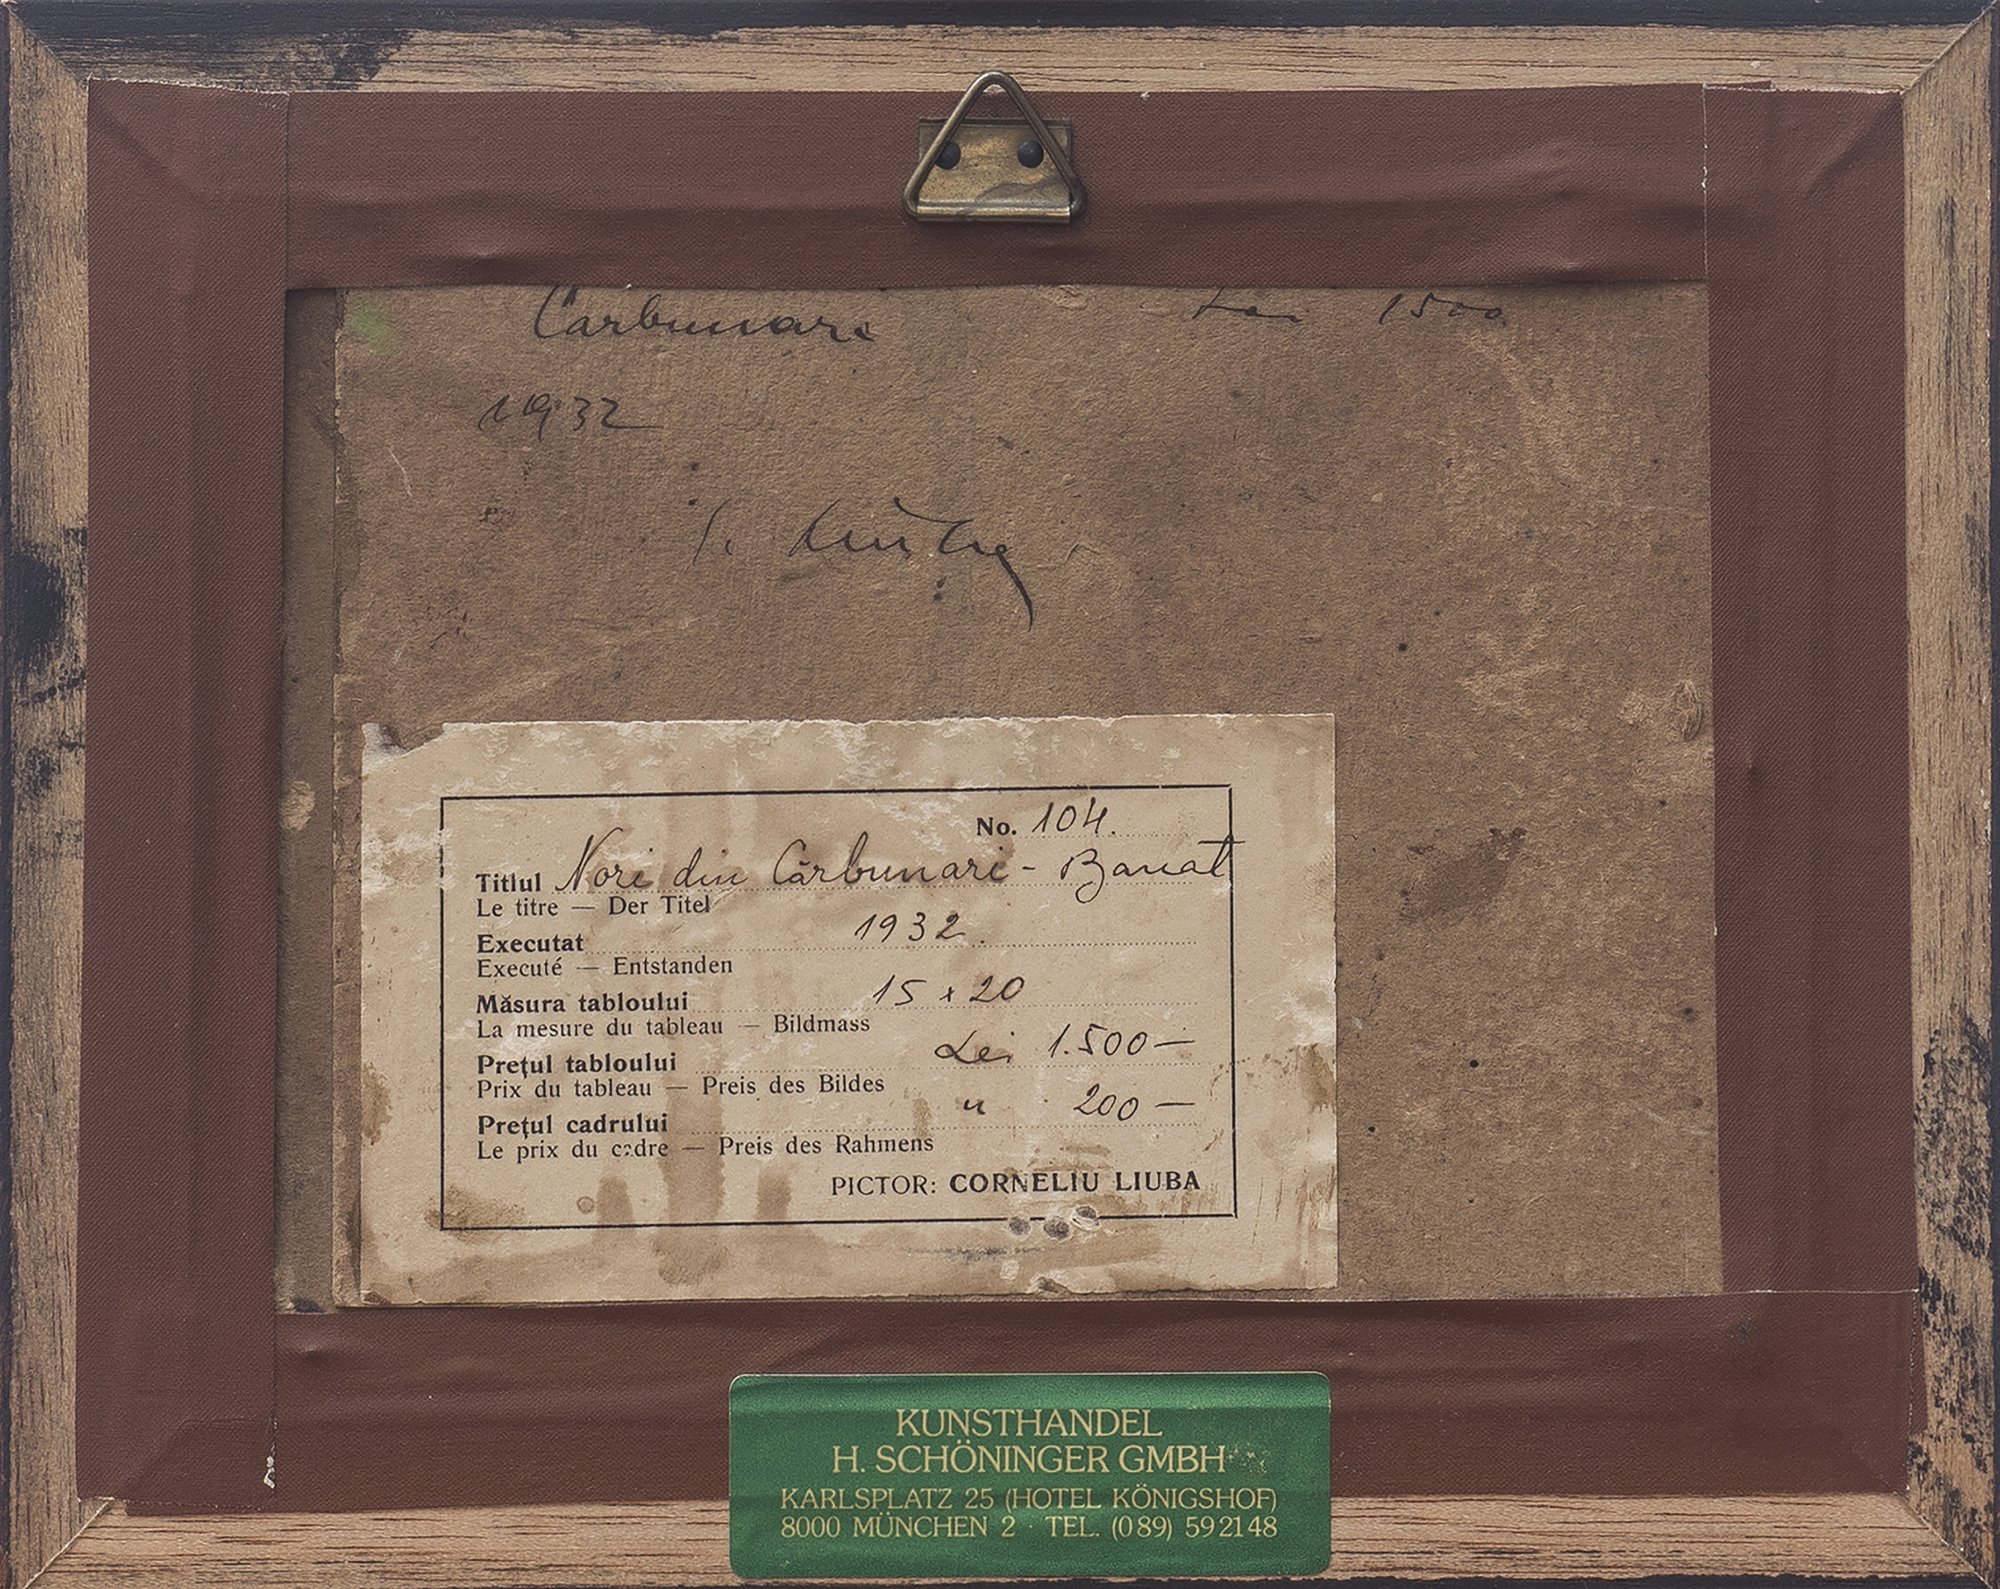 Cărbunari Lei 1500
1932
No. 104.
Titlul Nori din Cărbunari - Banat
Le titre — Der Titel
Executat 1932.
Executé — Entstanden
Măsura tabloului 15 x 20
La mesure du tableau — Bildmass
Prețul tabloului Lei 1.500 —
Prix du tableau — Preis des Bildes
Prețul cadrului " 200 —
Le prix du cadre — Preis des Rahmens
PICTOR: CORNELIU LIUBA
KUNSTHANDEL
H. SCHÖNINGER GMBH
KARLSPLATZ 25 (HOTEL KÖNIGSHOF)
8000 MÜNCHEN 2 · TEL. (089) 592148